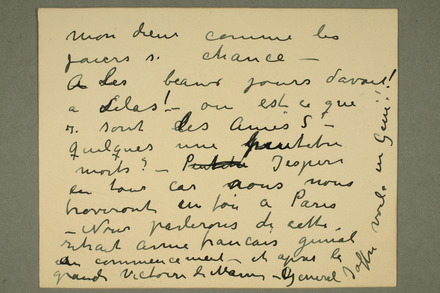 mon dieu comme les
jours s. chance –
A Les beaux jours d'avant!
a Lilas! – ou est ce que
s. sont les Amies 5 –
quelques une peutetre
morts? – J'espere
en tous cas nous nous
troveront en fois a Paris
– Nous parlerons de cette
retrait armee francais genial
au commencement – et apres la
grande Victoire de Marne – General Joffre voila un Genie!!